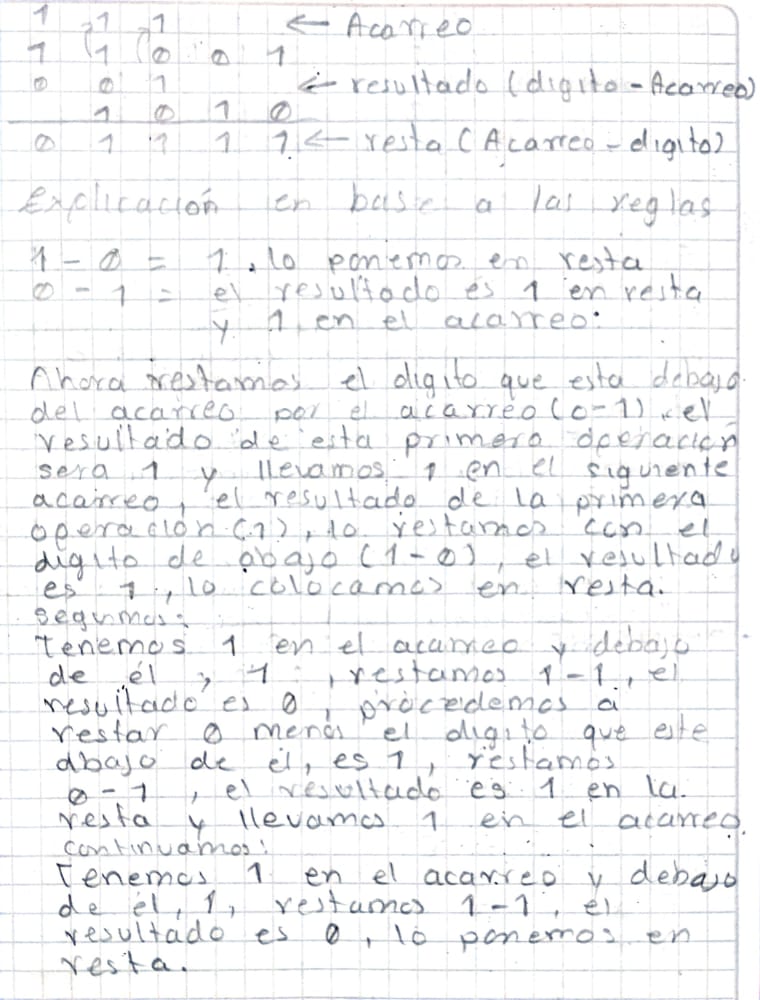 1 1 1 ← Acarreo
1 1 0 0 1
0 0 1 ← resultado (digito - Acarreo)
1 0 1 0
0 1 1 1 1 ← resta (Acarreo - digito)
Explicación en base a las reglas
1 - 0 = 1, lo ponemos en resta
0 - 1 = el resultado es 1 en resta
y 1 en el acarreo.
Ahora restamos el digito que esta debajo
del acarreo por el acarreo (0-1), el
resultado de esta primera operación
sera 1 y llevamos 1 en el siguiente
acarreo, el resultado de la primera
operación (1), lo restamos con el
digito de abajo (1-0), el resultado
es 1, lo colocamos en resta.
seguimos:
Tenemos 1 en el acarreo y debajo
de él, 1, restamos 1-1, el
resultado es 0, procedemos a
restar 0 menos el digito que este
abajo de él, es 1, restamos
0-1, el resultado es 1 en la
resta y llevamos 1 en el acarreo
continuamos:
Tenemos 1 en el acarreo y debajo
de él, 1, restamos 1-1, el
resultado es 0, lo ponemos en
resta.